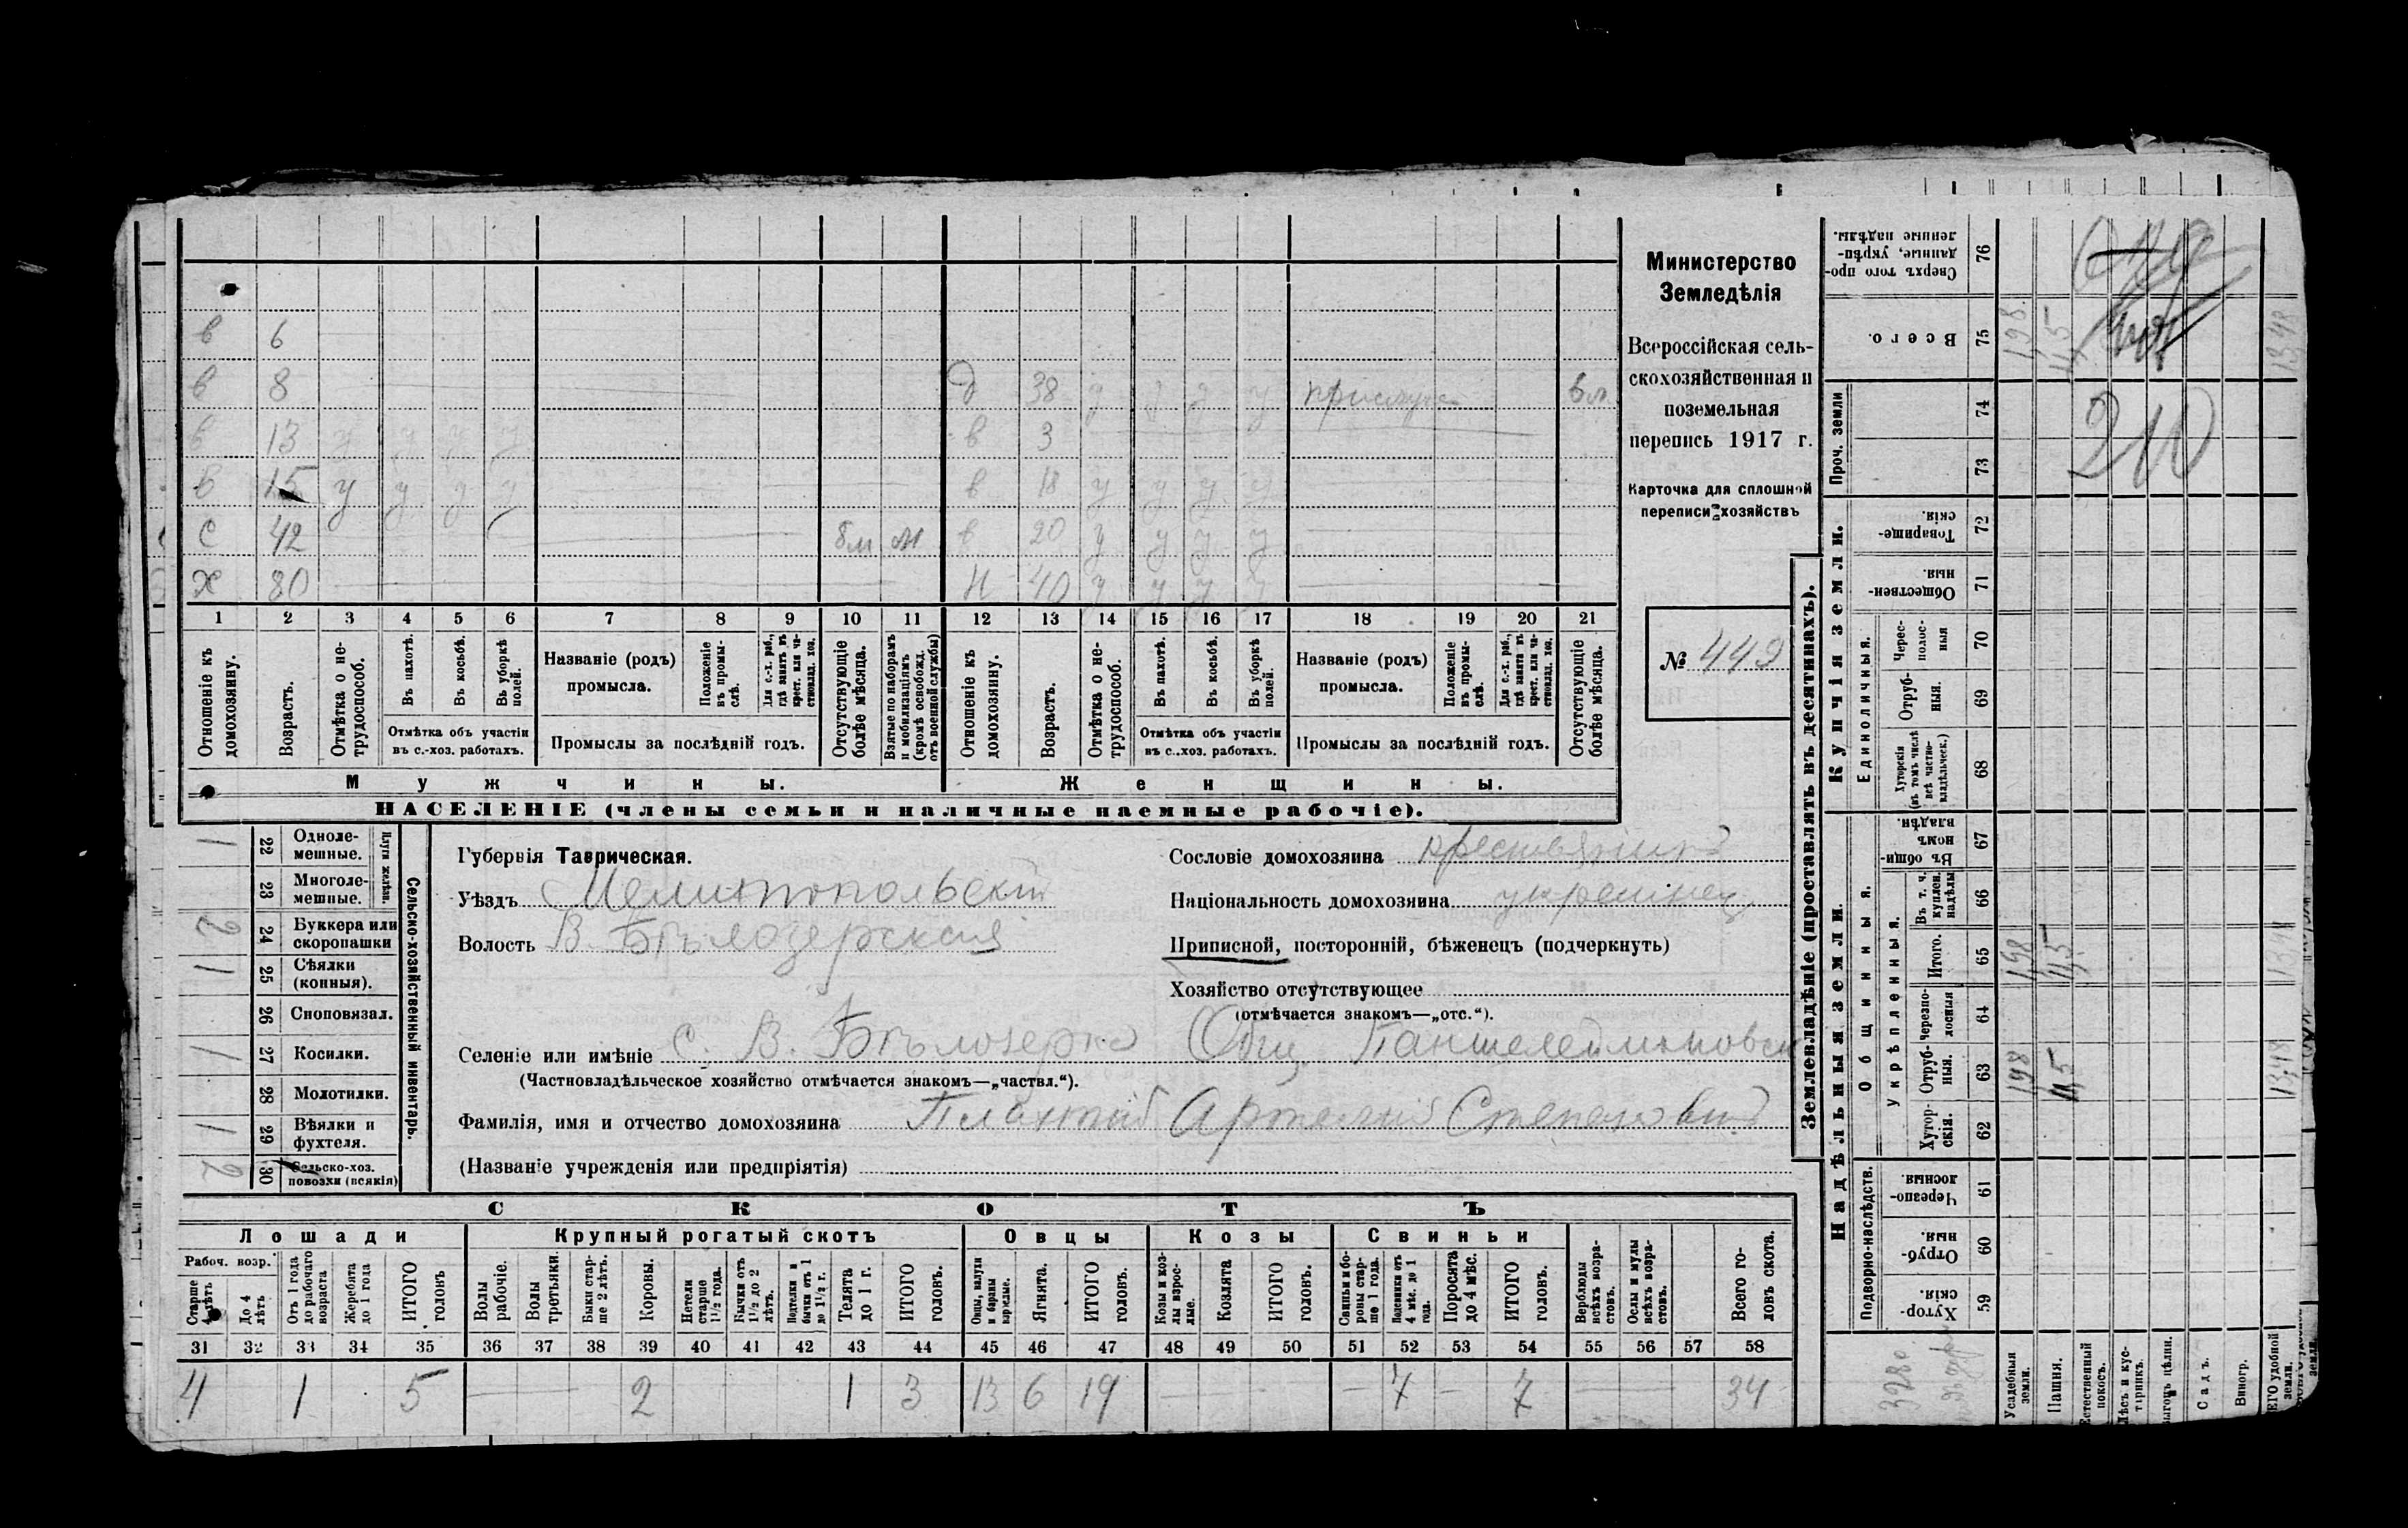 Министерство
Земледѣлія
Всероссійская сель-
скохозяйственная и
поземельная
перепись 1917 г.
Карточка для сплошной
переписи хозяйствъ
№ 449
в 6
в 8 д 38 у у у у прислуга 6м
в 13 у у у у в 3
в 15 у у у у в 18 у у у у
с 42 8м м в 20 у у у у
х 80 н 40 у у у у
1 2 3 4 5 6 7 8 9 10 11 12 13 14 15 16 17 18 19 20 21
Отношеніе къ домохозяину.
Возрастъ.
Отмѣтка о не-трудоспособ.
Въ пахотѣ.
Въ косьбѣ.
Въ уборкѣ полей.
Отмѣтка объ участіи
въ с.-хоз. работахъ.
Названіе (родъ)
промысла.
Положеніе въ промы-слѣ.
Для с.-х. раб., гдѣ занятъ въ крест. или ча-стновлад. хоз.
Промыслы за послѣдній годъ.
Отсутствующіе болѣе мѣсяца.
Взятые по наборамъ и мобилизаціямъ (кромѣ освобожд. отъ военной службы)
Отношеніе къ домохозяину.
Возрастъ.
Отмѣтка о не-трудоспособ.
Въ пахотѣ.
Въ косьбѣ.
Въ уборкѣ полей.
Отмѣтка объ участіи
въ с..хоз. работахъ.
Названіе (родъ)
промысла.
Положеніе въ промы-слѣ.
Для с.-х. раб., гдѣ занята въ крест. или ча-стновлад. хоз.
Промыслы за послѣдній годъ.
Отсутствующіе болѣе мѣсяца.
Мужчины.
Женщины.
НАСЕЛЕНІЕ (члены семьи и наличные наемные рабочіе).
Сельско-хозяйственный инвентарь.
Плуги желѣзн.
1 22 Одноле-мешные.
23 Многоле-мешные.
2 24 Буккера или скоропашки
1 25 Сѣялки (конныя).
26 Сноповязал.
1 27 Косилки.
28 Молотилки.
1 29 Вѣялки и фухтеля.
2 30 Сельско-хоз. повозки (всякія)
Губернія Таврическая.
Уѣздъ Мелитопольскій
Волость В. Бѣлозерская
Сословіе домохозяина крестьянинъ
Національность домохозяина украинец
Приписной, посторонній, бѣженецъ (подчеркнуть)
Хозяйство отсутствующее
(отмѣчается знакомъ—„отс.“).
Селеніе или имѣніе с. В. Бѣлозерка Общ. Пантелеймоновск
(Частновладѣльческое хозяйство отмѣчается знакомъ—„частвл.“).
Фамилія, имя и отчество домохозяина Артемій Степановичъ
(Названіе учрежденія или предпріятія)
СКОТЪ
Лошади
Крупный рогатый скотъ
Овцы
Козы
Свиньи
Рабоч. возр.
Старше 4 лѣтъ
До 4 лѣтъ
Отъ 1 года до рабочаго возраста
Жеребята до 1 года
ИТОГО головъ
Волы рабочіе.
Волы третьяки.
Быки стар-ше 2 лѣтъ.
Коровы.
Нетели старше 1½ года.
Бычки отъ 1½ до 2 лѣтъ.
Подтелки и бычки отъ 1 до 1½ г.
Телята до 1 г.
ИТОГО головъ.
Овцы, валухи и бараны взрослые.
Ягнята.
ИТОГО головъ.
Козы и коз-лы взрос-лые.
Козлята
ИТОГО головъ.
Свиньи и бо-ровы стар-ше 1 года.
Подсвинки отъ 4 мѣс. до 1 года.
Поросята до 4 мѣс.
ИТОГО головъ.
Верблюды всѣхъ возра-стовъ.
Ослы и мулы всѣхъ возра-стовъ.
Всего го-ловъ скота.
31 32 33 34 35 36 37 38 39 40 41 42 43 44 45 46 47 48 49 50 51 52 53 54 55 56 57 58
4 1 5 2 1 3 13 6 19 7 7 34
Землевладѣніе (проставлять въ десятинахъ).
Надѣльныя земли.
Купчія земли.
Проч. земли
Подворно-наслѣдств.
Общинныя.
Укрѣпленныя.
Единоличныя.
59 Хутор-скія.
60 Отруб-ныя.
61 Черезпо-лосныя.
62 Хутор-скія.
63 Отруб-ныя.
64 Черезпо-лосныя
65 Итого.
66 Въ т. ч. куплен. надѣлы
67 Въ общи-номъ владѣн.
68 Хуторскія (въ томъ числѣ всѣ частно-владѣльческ.)
69 Отруб-ныя.
70 Черес-полос-ныя
71 Обществен-ныя.
72 Товарище-скія.
73
74
75 Всего.
76 Сверхъ того про-данные, укрѣп-ленные надѣлы.
Усадебныя земли. 198 198 198
Пашня. 11,5 11,5 11,5
Естественный покосъ.
Лѣсъ и кус-тарникъ.
Выгонъ цѣлин.
Садъ.
Виногр.
ЕГО удобной земли. 13,48 13,48 13,48
210
3280